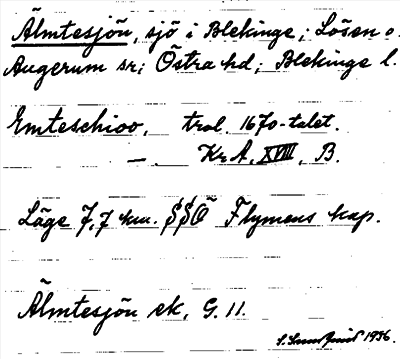 Älmtesjön, sjö i Blekinge; Lösen o.
Augerum sr; Östra hd; Blekinge l.
Emteschioo, trol. 1670-talet.
— Kr A. XVIII, B.
Läge 7,7 km. SSÖ Flymens kap.
Älmtesjön ek, G. 11.
1936.